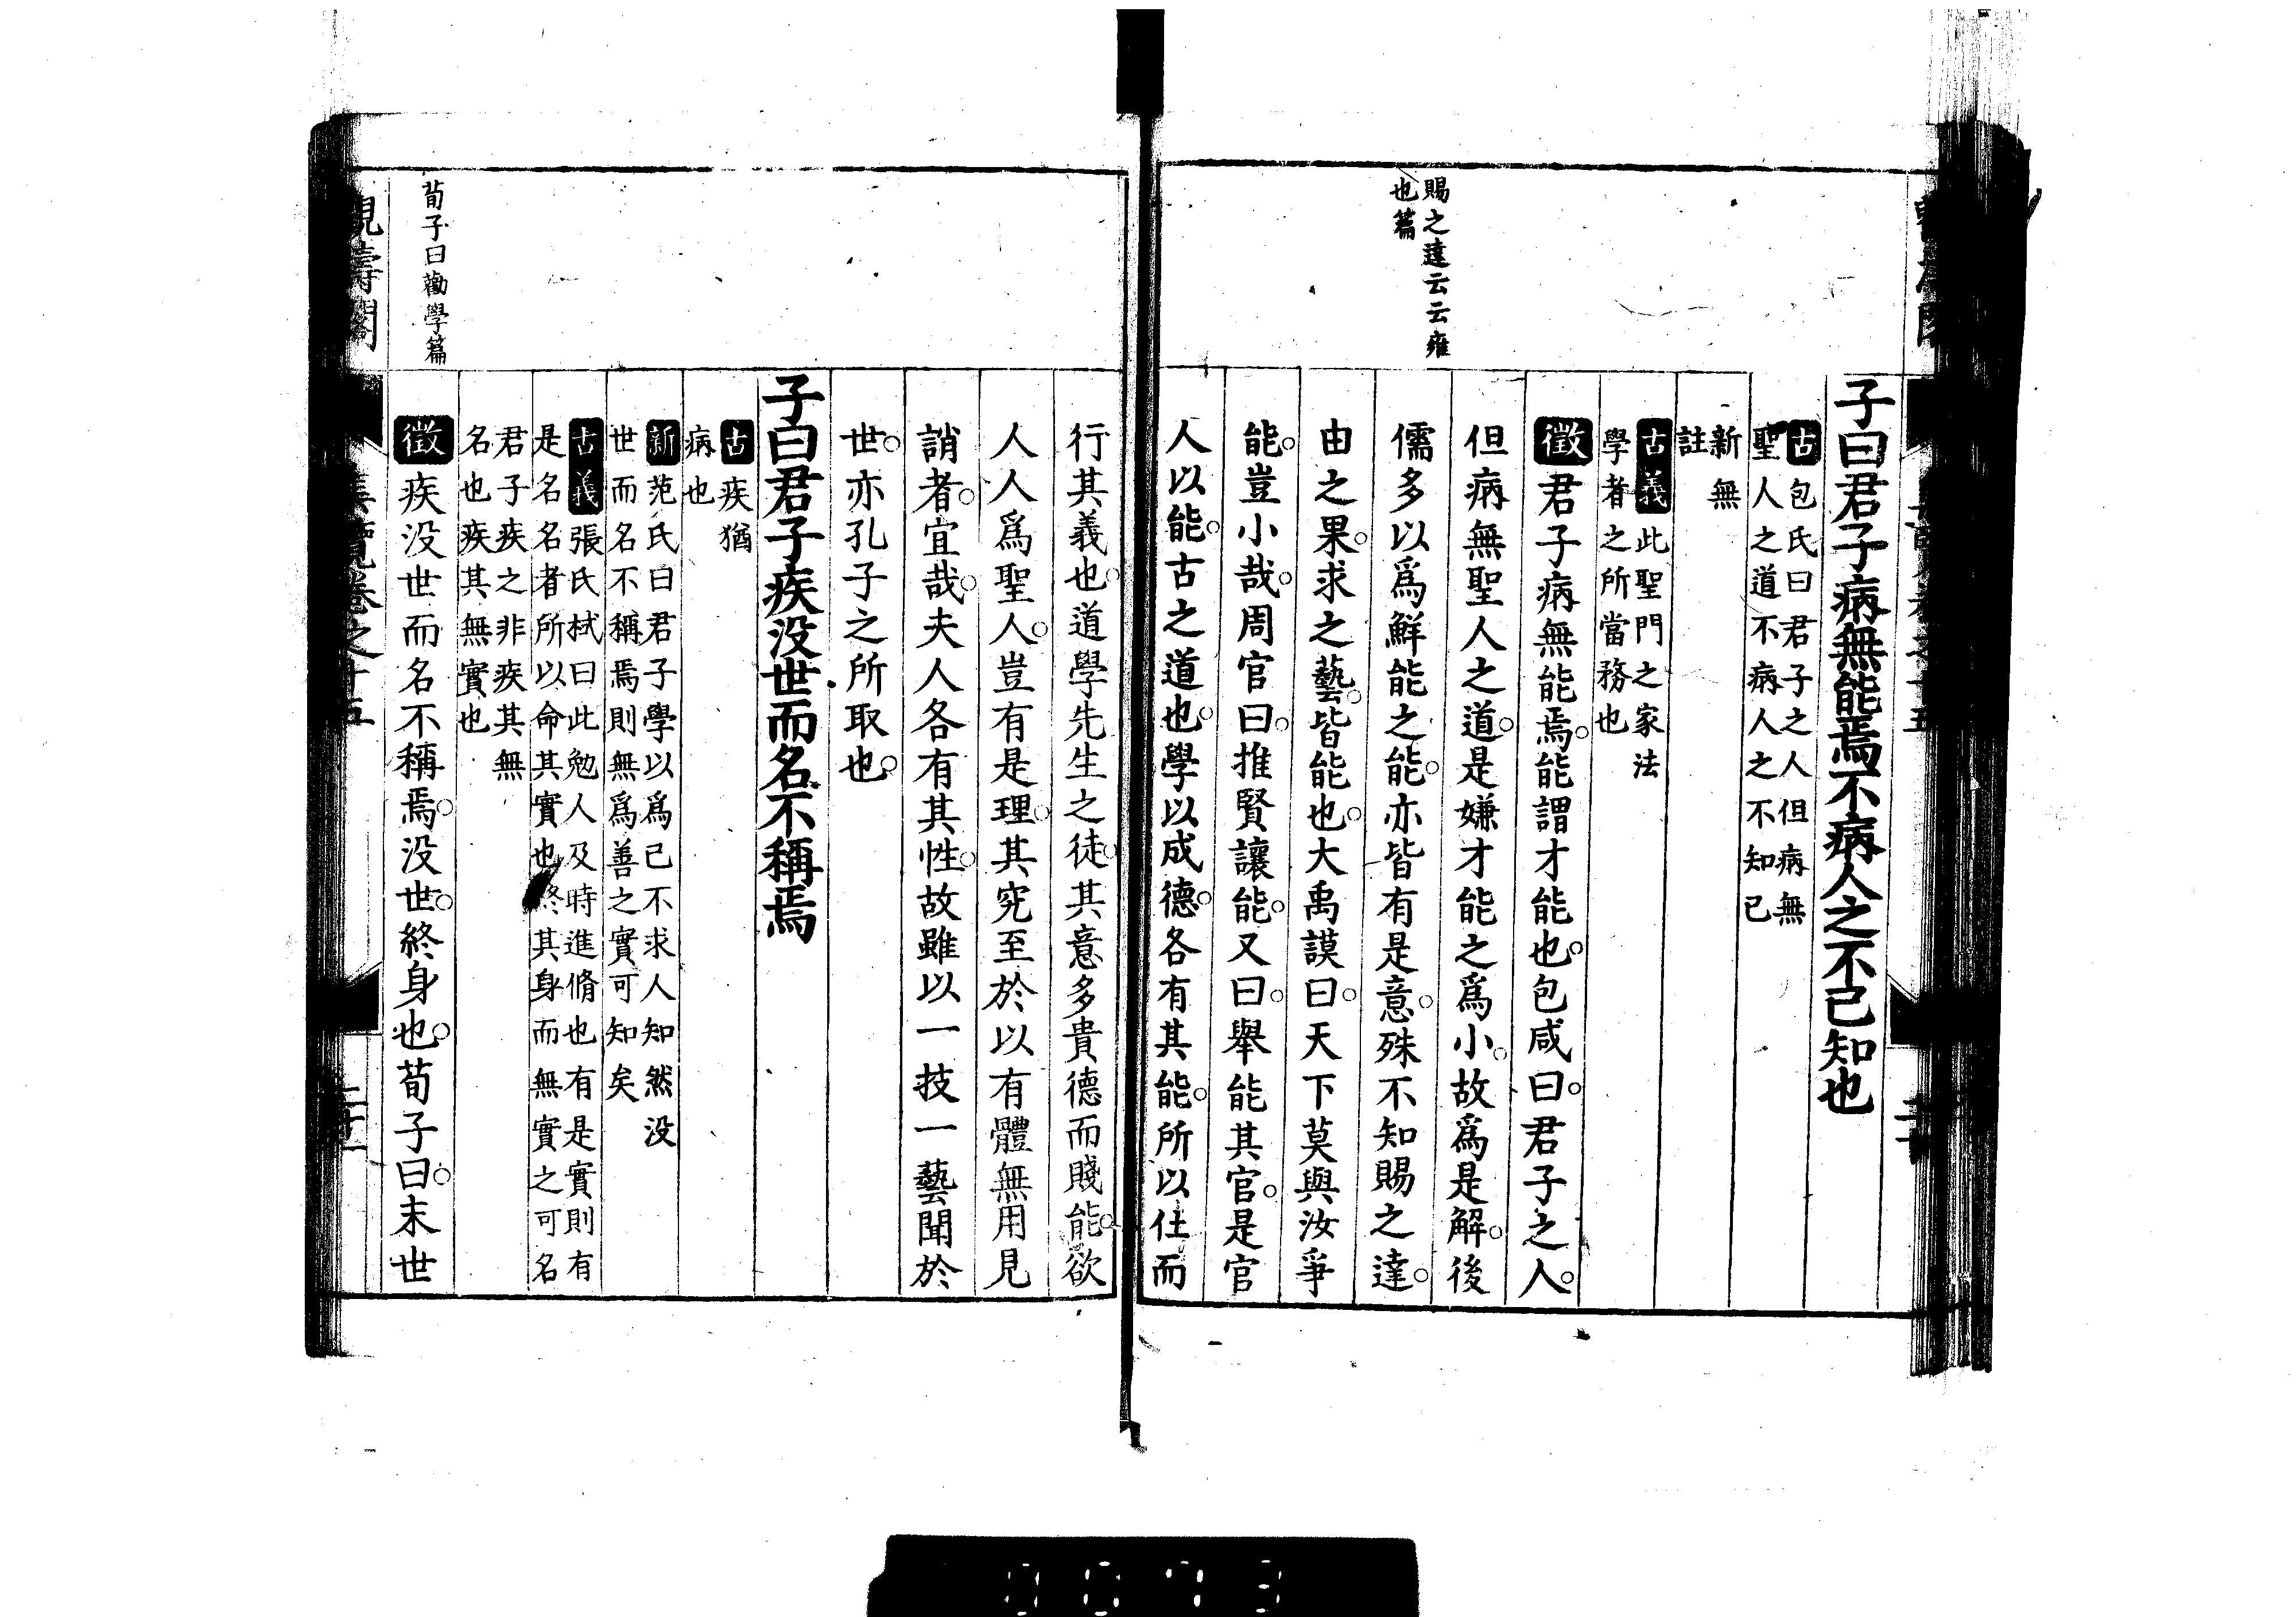 賜之達云云雍
也篇
子曰君子病無能焉不病人之不己知也
古包氏曰君子之人但病無
聖人之道不病人之不知己
新無
註
古義此聖門之家法
學者之所當務也
徵君子病無能焉。能謂才能也。包咸曰。君子之人。
但病無聖人之道。是嫌才能之爲小。故爲是解。後
儒多以爲鮮能之能。亦皆有是意。殊不知賜之達。
由之果。求之藝。皆能也。大禹謨曰。天下莫與汝爭
能。豈小哉。周官曰。推賢讓能。又曰。舉能其官。是官
人以能。古之道也。學以成德。各有其能。所以仕而
行其義也。道學先生之徒。其意多貴德而賤能。欲
人人爲聖人。豈有是理。其究至於以有體無用見
誚者。宜哉。夫人各有其性。故雖以一技一藝聞於
世。亦孔子之所取也。
子曰君子疾没世而名不稱焉
古疾猶
病也
新范氏曰君子學以爲己不求人知然没
世而名不稱焉則無爲善之實可知矣
古義張氏栻曰此勉人及時進脩也有是實則有
是名名者所以命其實也終其身而無實之可名
君子疾之非疾其無
名也疾其無實也
荀子曰勸學篇
徵疾没世而名不稱焉。没世。終身也。荀子曰。末世
觀濤閣
集覽卷之十五